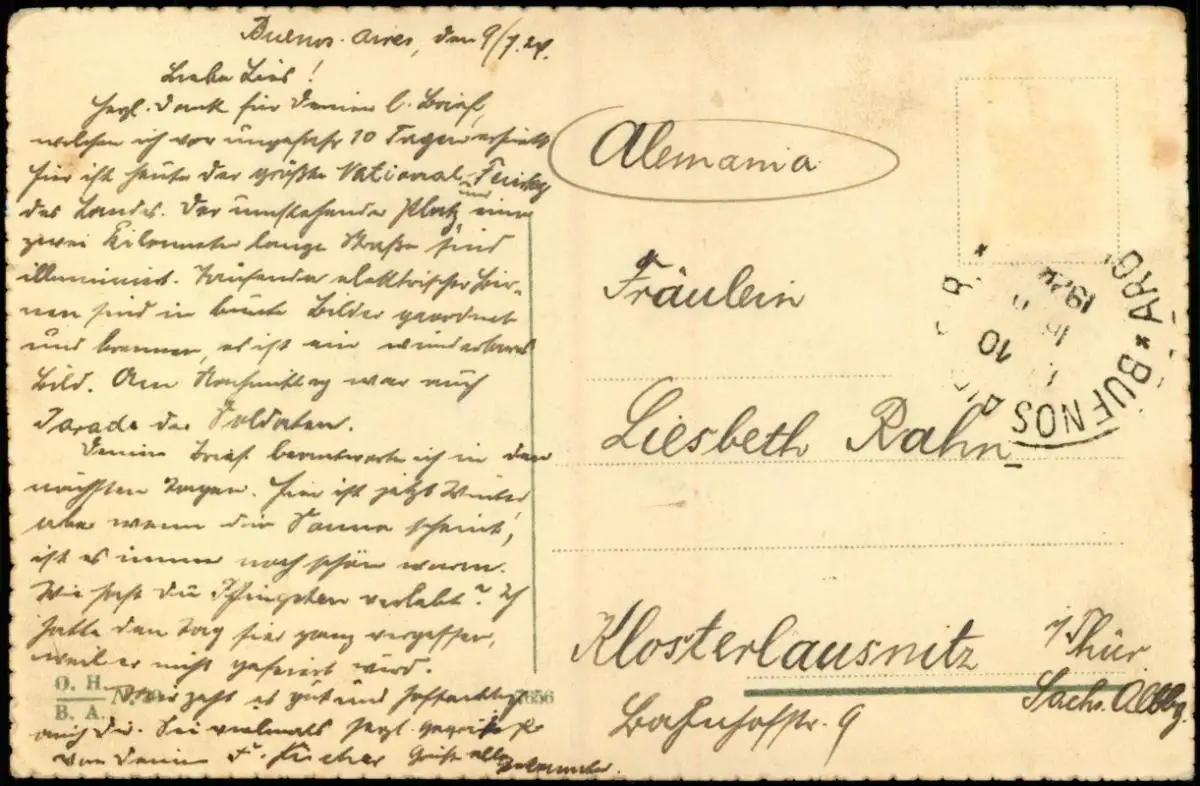 Buenos-Aires, den 9/7.24.
Liebe Lies!
Herzl. Dank für Deinen l. Brief,
welchen ich vor ungefähr 10 Tagen erhielt
Hier ist heute der größte National-Feiertag
des Landes. Der umstehende Platz und eine
zwei Kilometer lange Straße sind
illuminiert. Tausende elektrischer Bir-
nen sind in bunte Bilder geordnet
und brennen, es ist ein wunderbares
Bild. Am Nachmittag war auch
Parade der Soldaten.
Deinen Brief beantworte ich in den
nächsten Tagen. Hier ist jetzt Winter,
aber wenn die Sonne scheint,
ist es immer noch schön warm.
Wie hast Du Pfingsten verlebt? Ich
hatte den Tag hier ganz vergessen,
weil er nicht gefeiert wird.
Mir geht es gut und hoffentlich
auch Dir. Sei vielmals herzl. gegrüßt
von Deinem F. Kücher Grüße alle
O. H
B. A.
1656
Alemania
Fräulein
Liesbeth Rahn
Klosterlausnitz
i/Thür.
Sachs. Altbg.
Bahnhofstr. 9
* BUENOS AIRES * ARG
10
1924